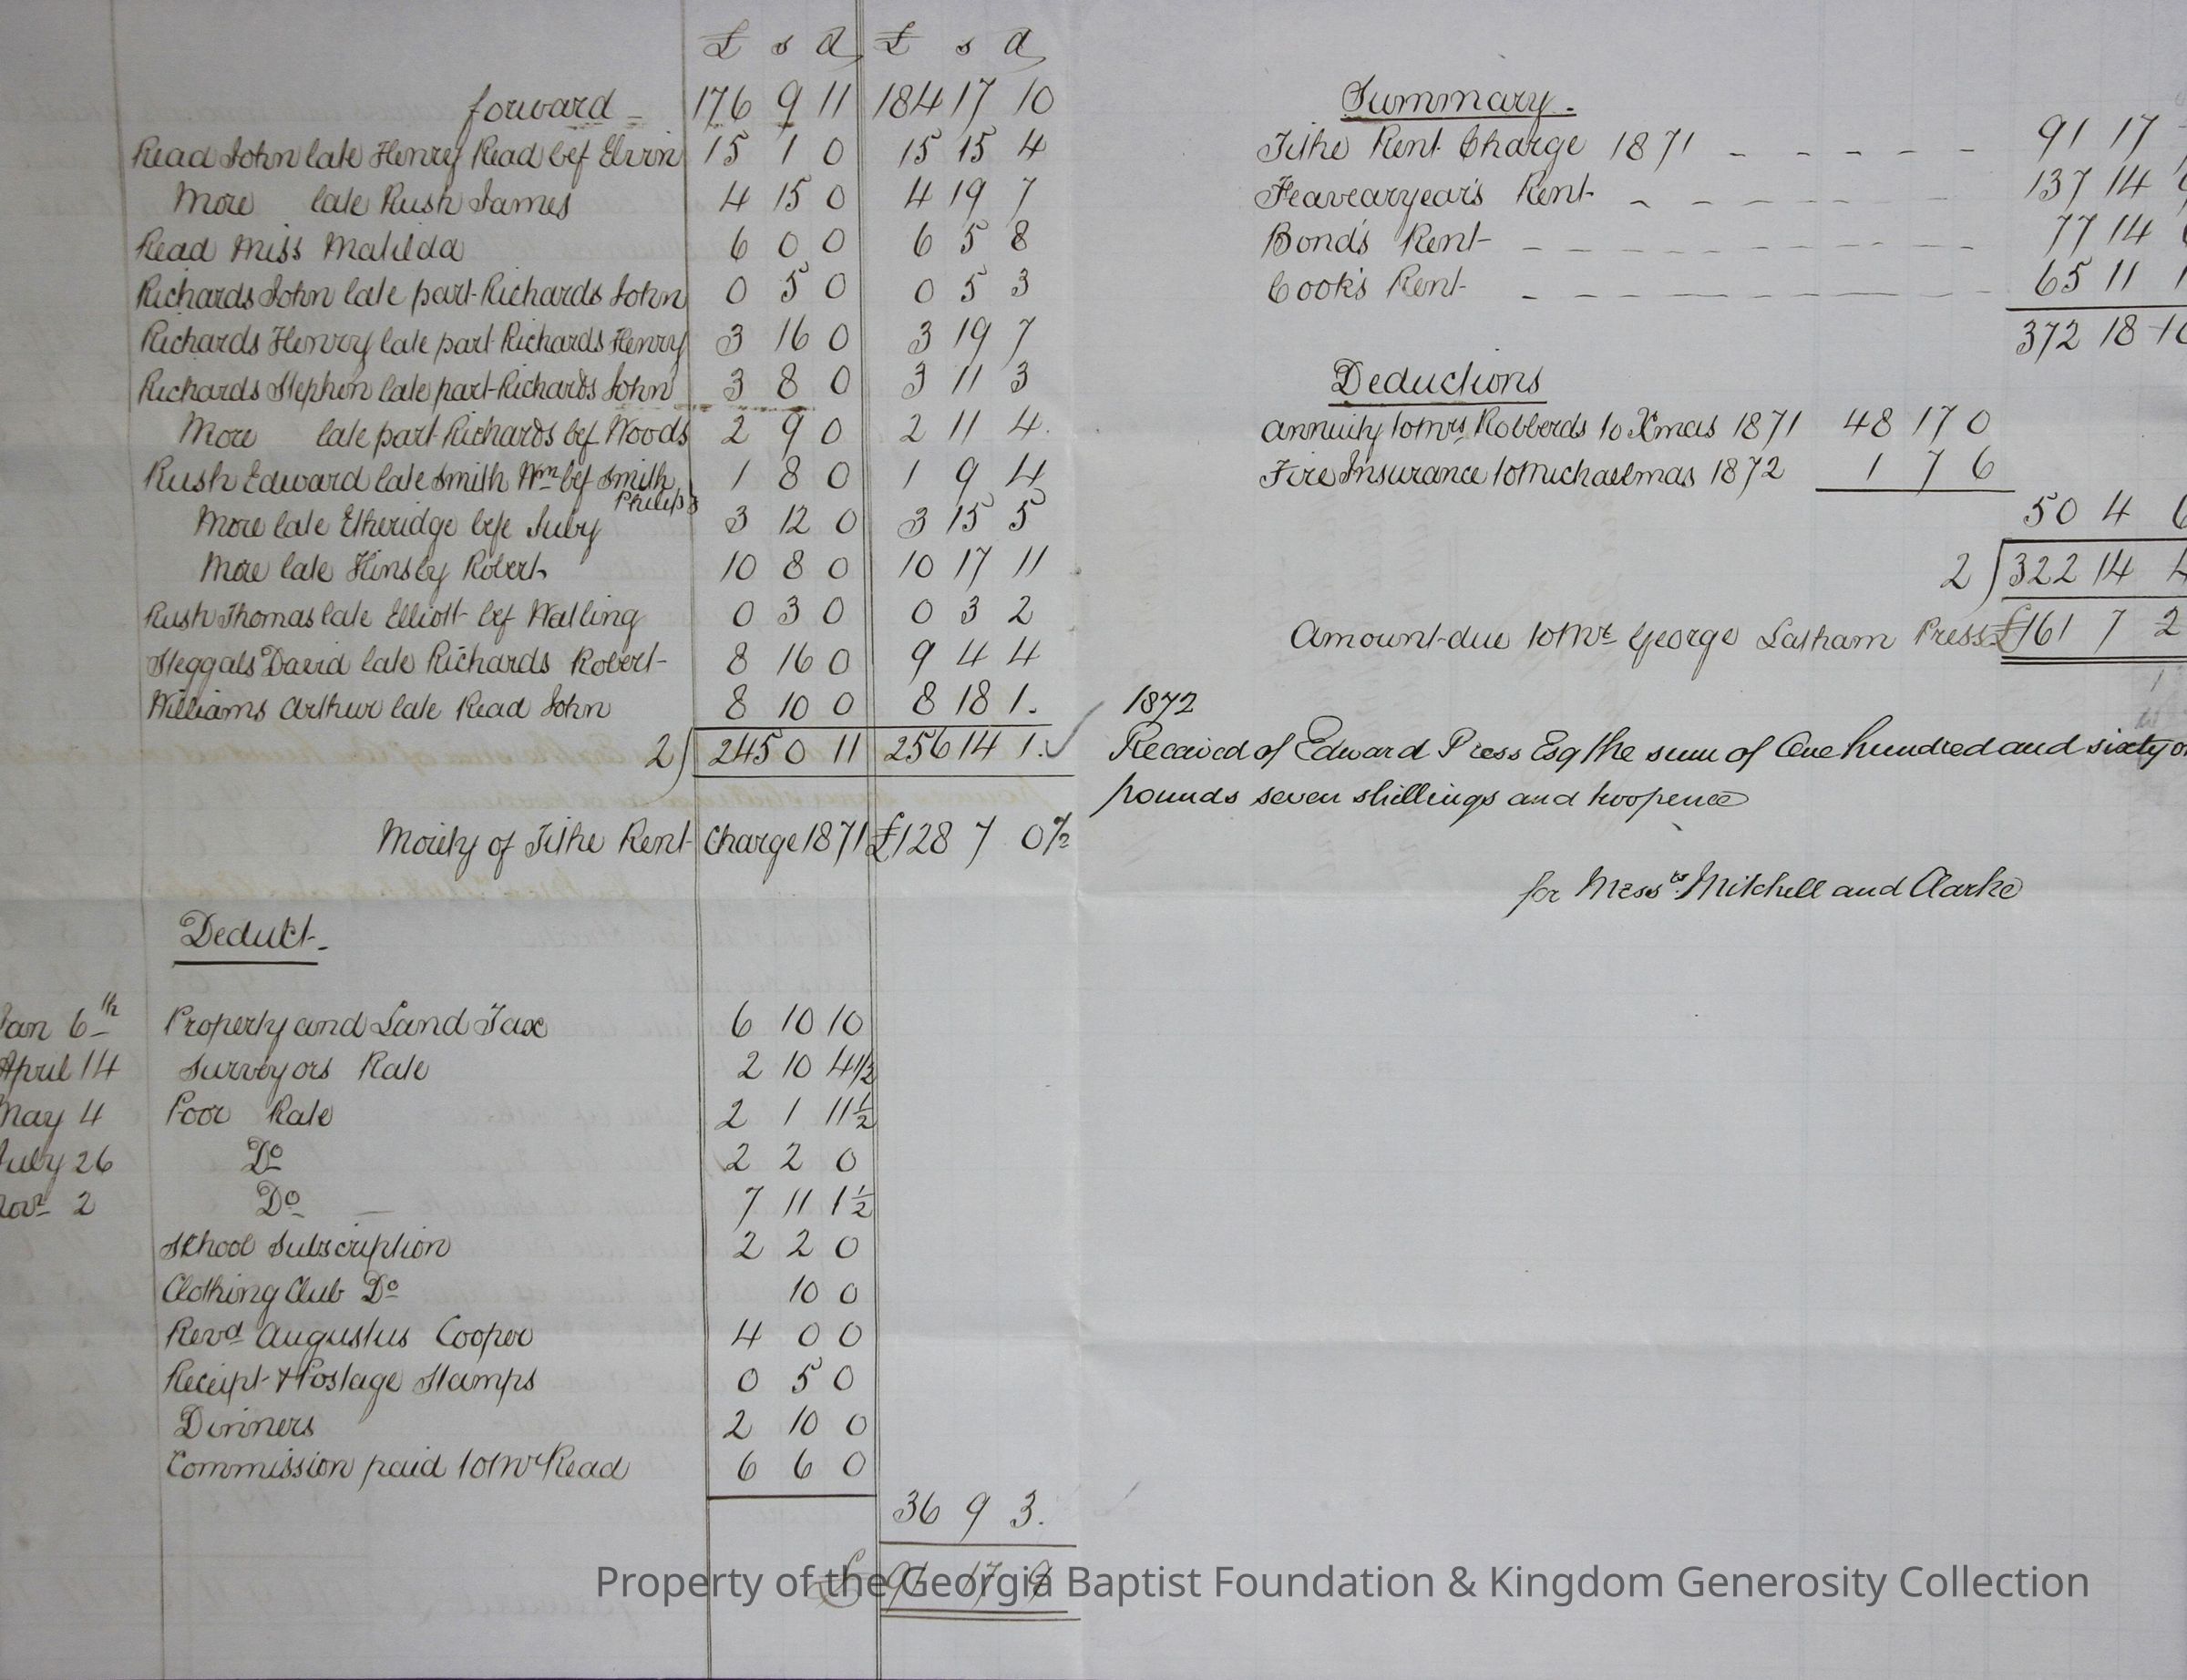 £ s d £ s d
forward - 176 9 11 184 17 10
Read John late Henry Read bef Elvin 15 1 0 15 15 4
More late Rush James 4 15 0 4 19 7
Read Miss Matilda 6 0 0 6 5 8
Richards John late part Richards John 0 5 0 0 5 3
Richards Henry late part Richards Henry 3 16 0 3 19 7
Richards Stephen late part Richards John 3 8 0 3 11 3
More late part Richards bef Woods 2 9 0 2 11 4.
Rush Edward late Smith Wm bef Smith 1 8 0 1 9 4
Philip
More late Etheridge befe Juby 3 12 0 3 15 5
More late Hinsby Robert 10 8 0 10 17 11
Rush Thomas late Elliott bef Watling 0 3 0 0 3 2
Steggals David late Richards Robert 8 16 0 9 4 4
Williams Arthur late Read John 8 10 0 8 18 1.
2) 245 0 11 256 14 1.
Moiety of Tithe Rent Charge 1871 £128 7 0½
Deduct -
Jan 6th Property and Land Tax 6 10 10
April 14 Surveyors Rate 2 10 4½
May 4 Poor Rate 2 1 11½
July 26 Do 2 2 0
Novr 2 Do 7 11 1½
School Subscription 2 2 0
Clothing Club Do 10 0
Revd Augustus Cooper 4 0 0
Receipt & Postage Stamps 0 5 0
Dinners 2 10 0
Commission paid to Mr Read 6 6 0
36 9 3.
£ 91 17 9
Summary -
Tithe Rent Charge 1871 - - - - - 91 17
Feavearyear's Rent - - - - - - 137 14
Bond's Rent - - - - - - - - 77 14
Cook's Rent - - - - - - - - 65 11 1
372 18 10
Deductions
Annuity to Mrs Robberds to Xmas 1871 48 17 0
Fire Insurance to Michaelmas 1872 1 7 6
50 4 6
2) 322 14 4
Amount due to Mr George Latham Press £161 7 2
1872
Received of Edward Press Esq the sum of One hundred and sixty on
pounds seven shillings and twopence
for Messrs. Mitchell and Clarke
Property of the Georgia Baptist Foundation & Kingdom Generosity Collection